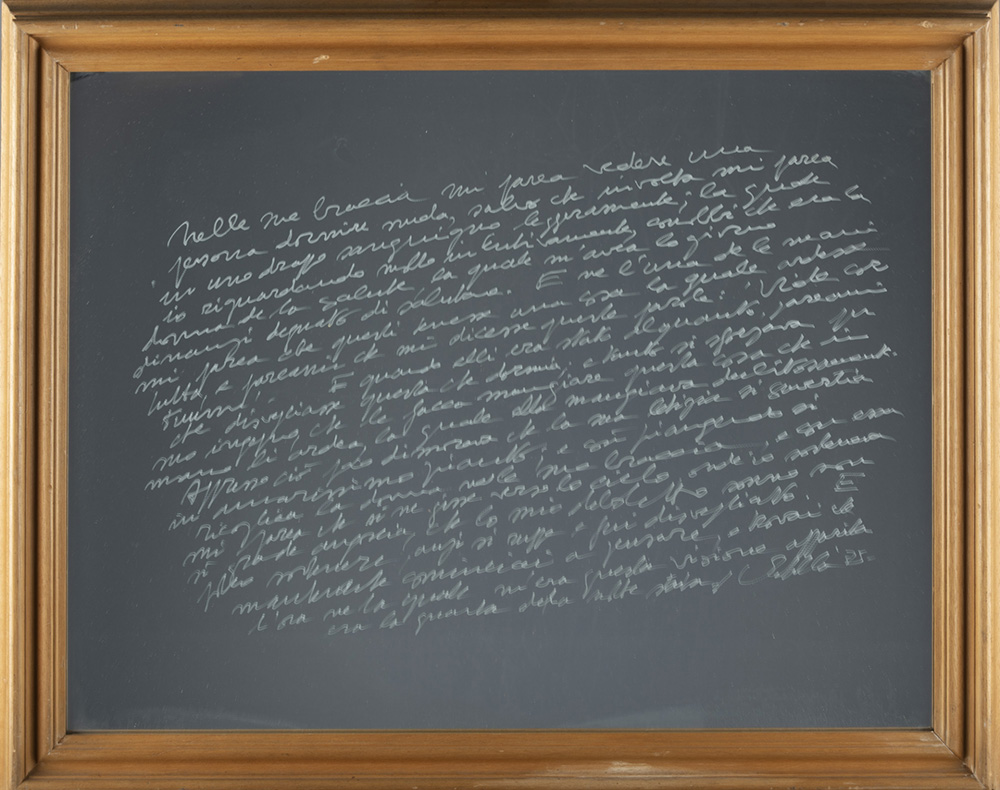 Nelle sue braccia mi parea vedere una
persona dormire nuda, salvo che involta mi parea
in uno drappo sanguigno leggeramente; la quale
io riguardando molto intentivamente, conobbi ch'era la
donna de la salute, la quale m'avea lo giorno
dinanzi degnato di salutare. E ne l'una de le mani
mi parea che questi tenesse una cosa la quale ardesse
tutta, e pareami che mi dicesse queste parole: "Vide cor
tuum". E quando elli era stato alquanto, pareami
che disvegliasse questa che dormia; e tanto si sforzava per
suo ingegno, che le facea mangiare questa cosa che in
mano li ardea, la quale ella mangiava dubitosamente.
Appresso ciò poco dimorava che la sua letizia si convertia
in amarissimo pianto; e così piangendo, si
ricogliea la donna nelle sue braccia, e con essa
mi parea che si ne gisse verso lo cielo; onde io sostenea
sì grande angoscia, che lo mio deboletto sonno non
poteo sostenere, anzi si ruppe e fui disvegliato. E
mantenente cominciai a pensare, e trovai che
l'ora ne la quale m'era questa visione apparita
era la quarta della notte stata